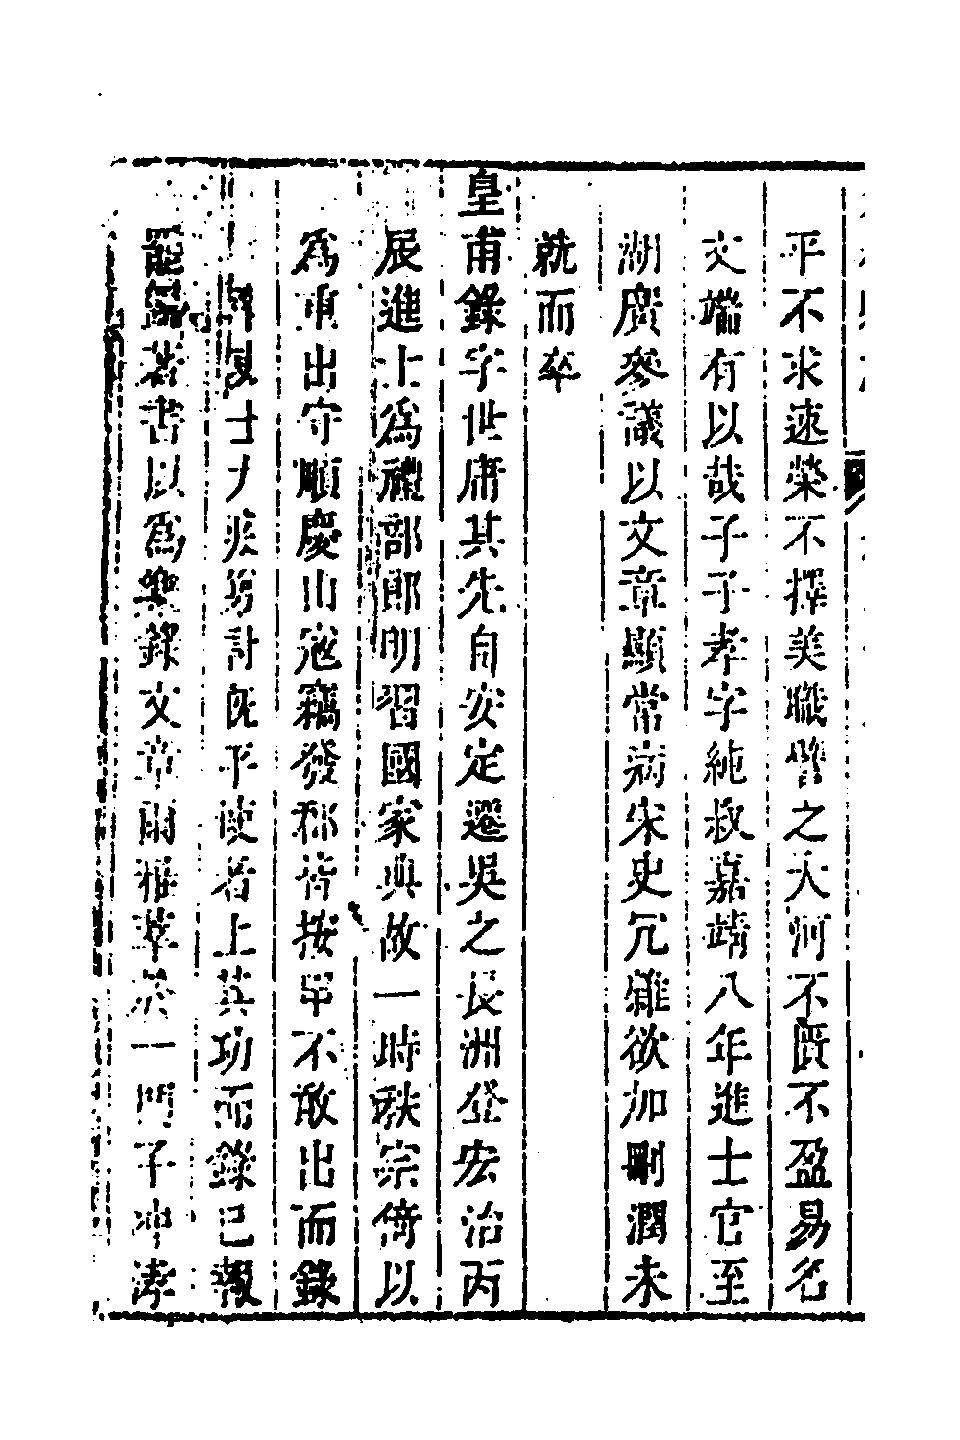 平不求速榮不擇美職譬之大河不溉不盈易名
文端有以哉子子孝字純叔嘉靖八年進士官至
湖廣參議以文章顯常病宋史冗雜欲加刪潤未
就而卒
皇甫錄字世庸其先自安定遷吳之長洲登宏治丙
辰進士為禮部郎明習國家典故一時秩宗倚以
為重出守順慶山寇竊發郡皆按甲不敢出而錄
士夾剪計既平使者上其功而錄已報
罷歸著書以為樂錄文章爾雅萃於一門子冲涍